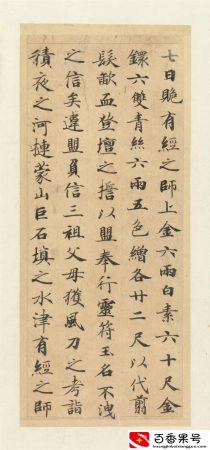 七日賂有經之師上金六兩白素六十尺金
鐶六雙青絲六兩五色繒各廿二尺以代翦
髮歃血登壇之誓以盟奉行靈符玉名不洩
之信矣違盟負信三祖父母獲風刀之考詣
積夜之河摙蒙山巨石填之水津有經之師
百番果号